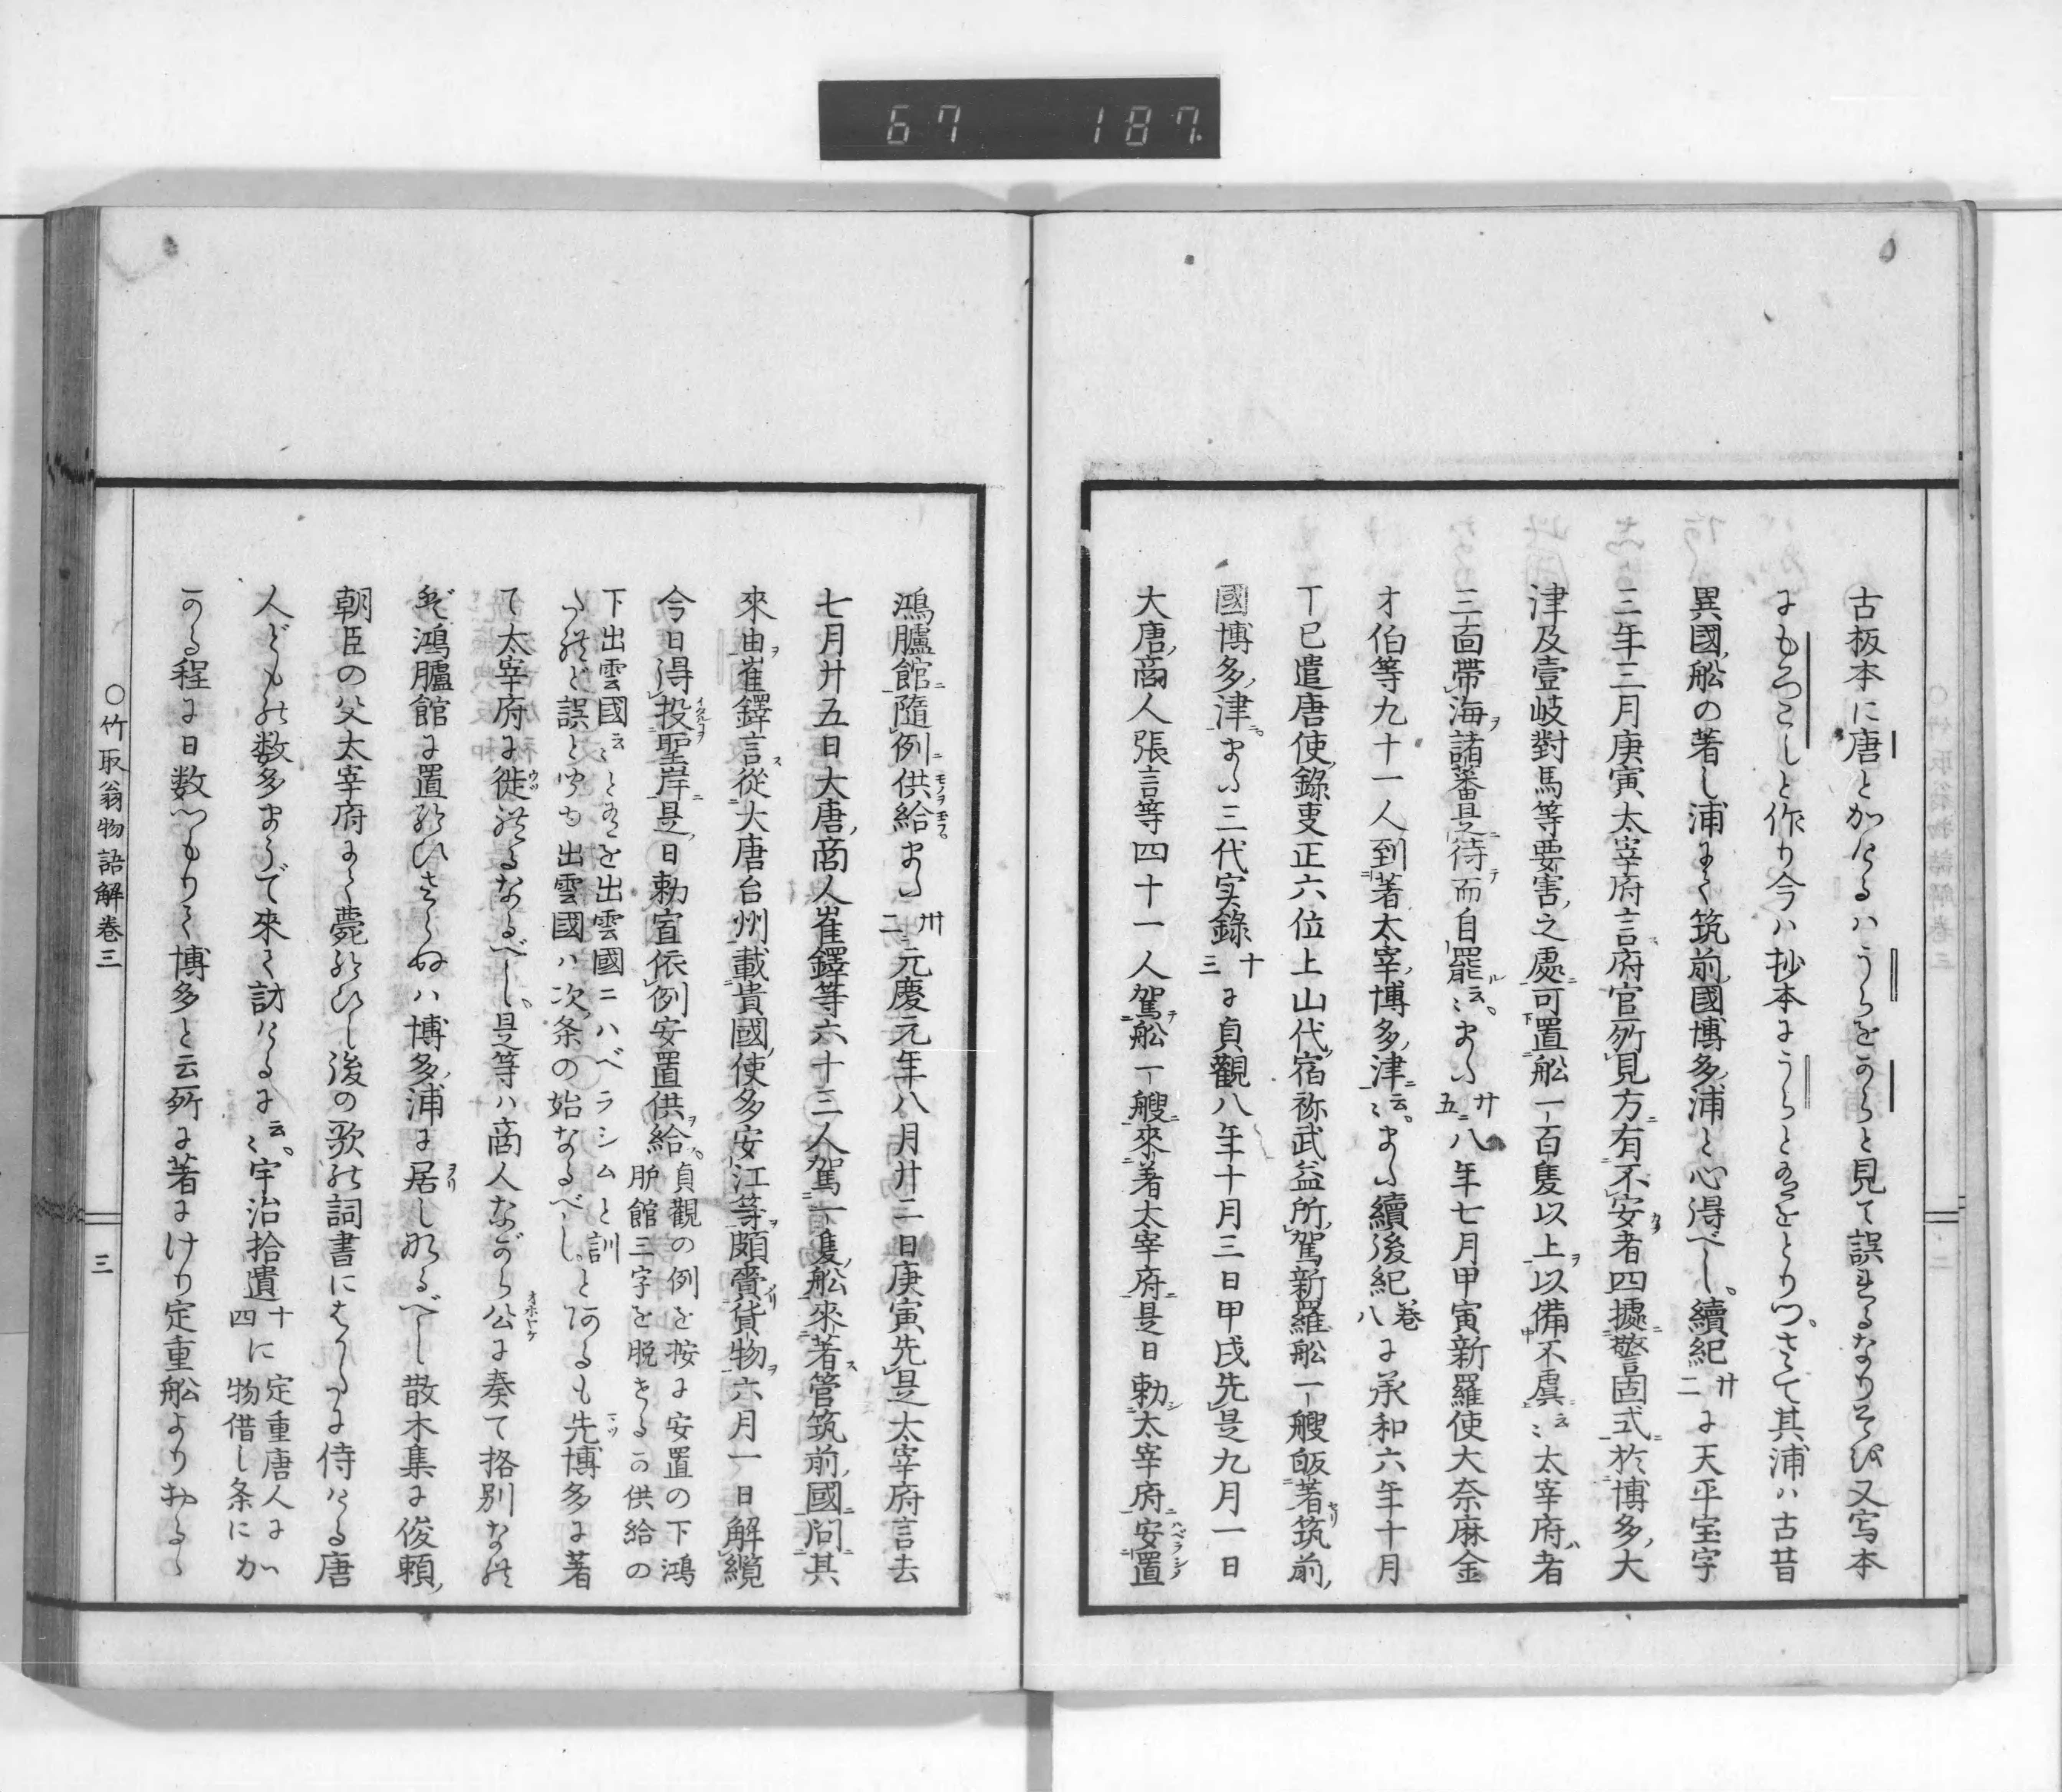 67 187
古板本に唐とかけるハうらをからと見て誤れるなりそハ又写本
にもろこしと作り今ハ抄本にうらとあるをとりつさて其浦ハ古昔
異國舩の著し浦にて筑前國博多浦と心得べし續紀廿二に天平宝字
三年三月庚寅太宰府言府官所見方有不安者四據警固式於博多大
津及壹岐對馬等要害之處可置舩一百隻以上以備不虞云〻太宰府者
三面帶海諸蕃是待而自罷云〻また廿五八年七月甲寅新羅使大奈麻金
才伯等九十一人到著太宰博多津云〻また續後紀巻八に承和六年十月
丁巳遣唐使錄叓正六位上山代宿祢武益所駕新羅舩一艘皈著筑前
國博多津また三代実錄十三に貞觀八年十月三日甲戌先是九月一日
大唐商人張言等四十一人駕舩一艘來著太宰府是日勅太宰府安置
鴻臚館隨例供給また卅二元慶元年八月廿二日庚寅先是太宰府言去
七月廿五日大唐商人崔鐸等六十三人駕一隻舩來著管筑前國问其
來由崔鐸言從大唐台州載貴國使多安江等頗賷貨物六月一日解纜
今日得投聖岸是日勅宜依例安置供給貞觀の例を按に安置の下鴻
臚館三字を脱せるか供給の
下出雲國云〻とあるを出雲國ニハベラシムと訓
たれど誤とゆめ出雲國ハ次条の始なるべしとあるも先博多に著
て太宰府に徙れるなるべし是等ハ商人ながら公に奏て挌別なれ
ぞ鴻臚館に置れけむさらぬハ博多浦に居しなるべし散木集に俊頼
朝臣の父太宰府にて薨れけし後の歌の詞書にはかたに侍ける唐
人どもの数多まうで來て訪けるに云〻宇治拾遺十四に定重唐人に
物借し条にか
かる程に日数つもりて博多と云所に著にけり定重舩よりおるゝ
〇竹取翁物語解巻三
三